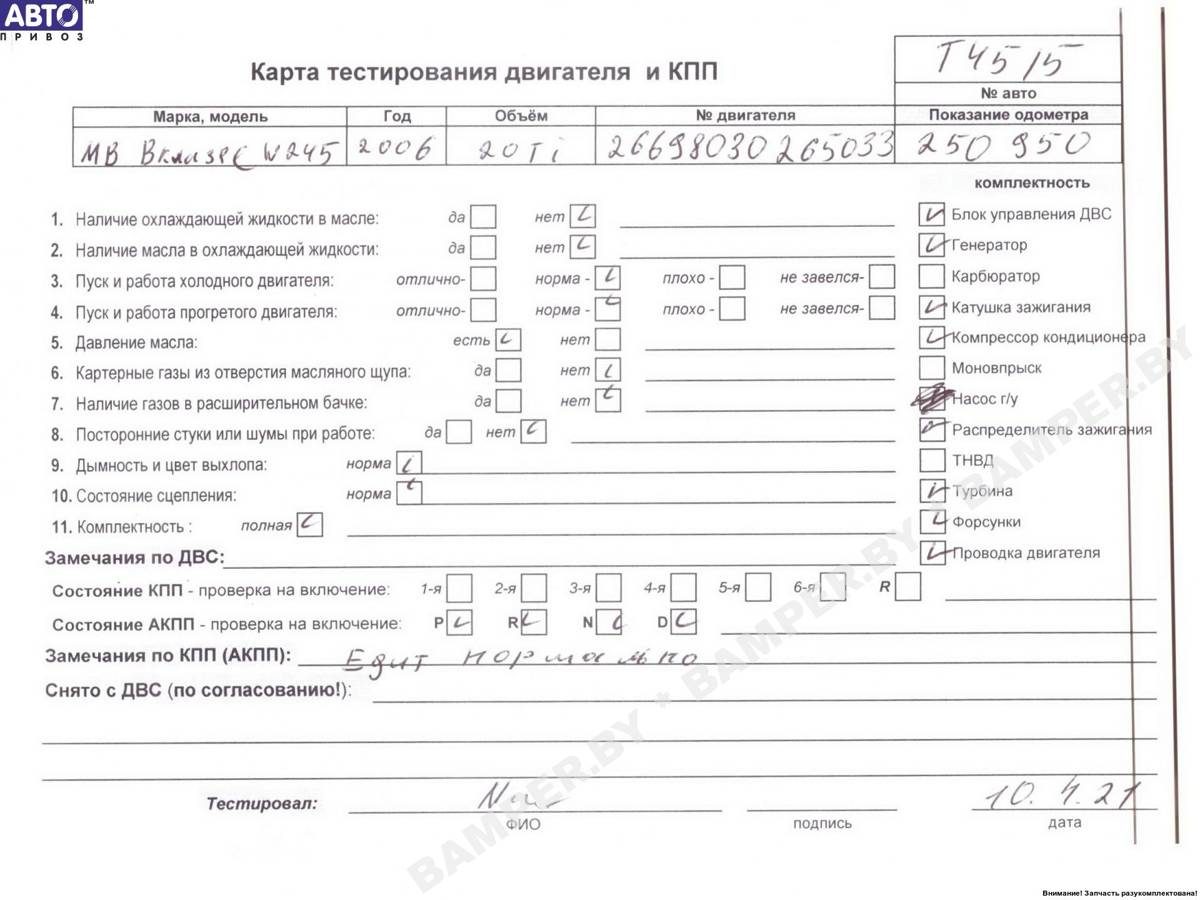 АВТО™
ПРИВОЗ
Т45/5
Карта тестирования двигателя и КПП
№ авто
Марка, модель Год Объём № двигателя Показание одометра
МВ Вклизсе W245 2006 20Ti 26698030 265033 250 950
комплектность
1. Наличие охлаждающей жидкости в масле: да нет Блок управления ДВС
2. Наличие масла в охлаждающей жидкости: да нет Генератор
3. Пуск и работа холодного двигателя: отлично- норма - плохо - не завелся- Карбюратор
4. Пуск и работа прогретого двигателя: отлично- норма - плохо - не завелся- Катушка зажигания
5. Давление масла: есть нет Компрессор кондиционера
6. Картерные газы из отверстия масляного щупа: да нет Моновпрыск
7. Наличие газов в расширительном бачке: да нет Насос г/у
8. Посторонние стуки или шумы при работе: да нет Распределитель зажигания
9. Дымность и цвет выхлопа: норма ТНВД
10. Состояние сцепления: норма Турбина
11. Комплектность : полная Форсунки
Замечания по ДВС: Проводка двигателя
Состояние КПП - проверка на включение: 1-я 2-я 3-я 4-я 5-я 6-я R
Состояние АКПП - проверка на включение: P R N D
Замечания по КПП (АКПП): Едит нормально
Снято с ДВС (по согласованию!):
Тестировал: 10.4.21
ФИО подпись дата
BAMPER.BY * BAMPER.BY * BAMPER.BY * BAMPER.BY
Внимание! Запчасть разукомплектована!